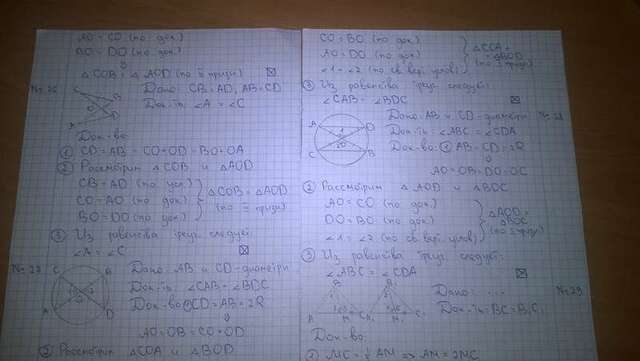 AO = CO (по док.)
BO = DO (по док.)
⇓
△COB = △AOD (по II призн.)
Дано: CB = AD, AB = CD
Док-ть: ∠A = ∠C
Док-во:
① CD = AB = CO + OD = BO + OA
② Рассмотрим △COB и △AOD
CB = AD (по усл.)
CO = AO (по док.)
BO = DO (по док.)
△COB = △AOD
(по III призн)
③ Из равенства треуг. следует:
∠A = ∠C
Дано: AB и CD - диаметры
Док-ть: ∠CAB = ∠BDC
Док-во: ① CD = AB = 2R
⇓
AO = OB = CO = OD
② Рассмотрим △COA и △BOD
CO = BO (по док.)
AO = DO (по док.)
∠1 = ∠2 (по св. верт. углов)
△COA =
△BOD
(по I призн)
③ Из равенства треуг. следует:
∠CAB = ∠BDC
Дано: AB и CD - диаметры
Док-ть: ∠ABC = ∠CDA
Док-во: ① AB = CD = 2R
⇓
AO = OB = DO = OC
② Рассмотрим △AOD и △BOC
AO = CO (по док.)
DO = BO (по док.)
∠1 = ∠2 (по св. верт. углов)
△AOD =
△BOC
(по I призн)
③ Из равенства треуг. следует:
∠ABC = ∠CDA
№ 29
Дано: ....
Док-ть: BC = B₁C₁
Док-во: